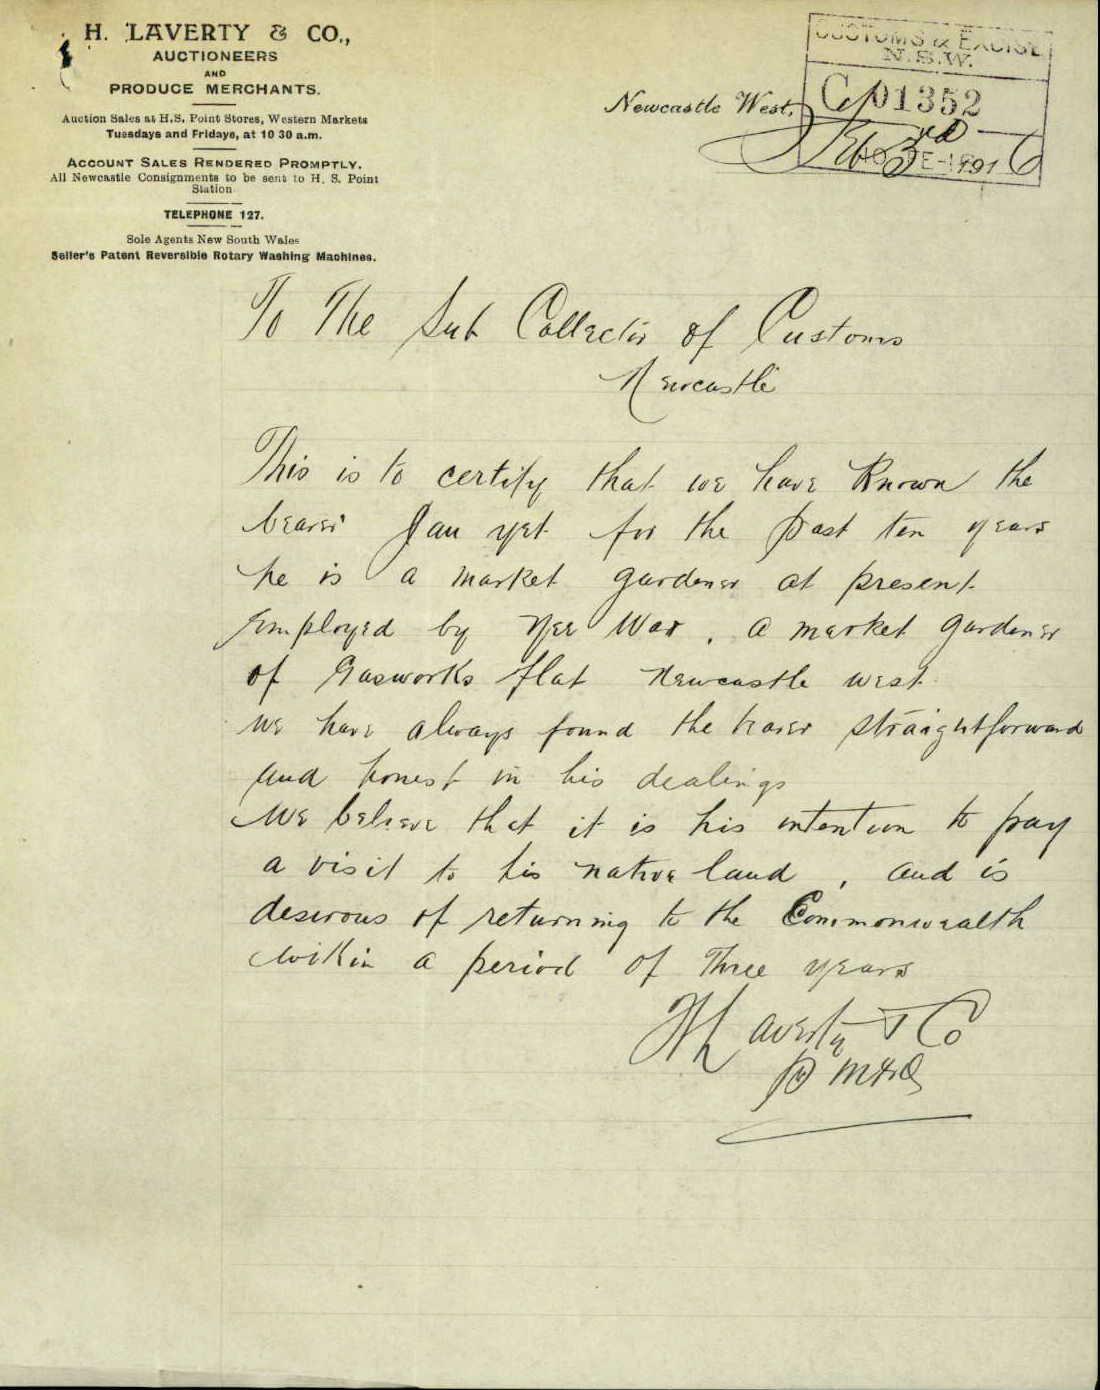 H. LAVERTY & CO.,
AUCTIONEERS
AND
PRODUCE MERCHANTS.
Auction Sales at H.S. Point Stores, Western Markets
Tuesdays and Fridays, at 10 30 a.m.
ACCOUNT SALES RENDERED PROMPTLY.
All Newcastle Consignments to be sent to H. S. Point
Station
TELEPHONE 127.
Sole Agents New South Wales
Seller's Patent Reversible Rotary Washing Machines.
CUSTOMS & EXCISE
N.S.W.
C 01352
Newcastle West,
Feb 3rd 1916
To The Sub Collector of Customs
Newcastle
This is to certify that we have Known the
bearer Jan yet for the past ten years
he is a market gardener at present
Employed by Yee War, a market gardener
of Gasworks flat Newcastle west
we have always found the bearer straightforward
and honest in his dealings
We believe that it is his intention to pay
a visit to his native land, and is
desirous of returning to the Commonwealth
within a period of three years
H Laverty & Co